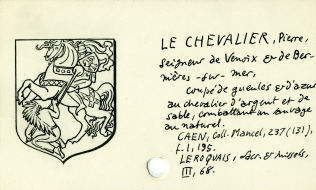 LE CHEVALIER, Pierre,
Seigneur de Venoix & de Ber-
nières-sur-mer,
Coupé de gueules & d'azur
au chevalier d'argent et de
sable, combattant un sauvage
au naturel.
CAEN, Coll. Mancel, 237 (131),
f. 1, 195.
LEROQUAIS, Sacr. & missels,
III, 68.